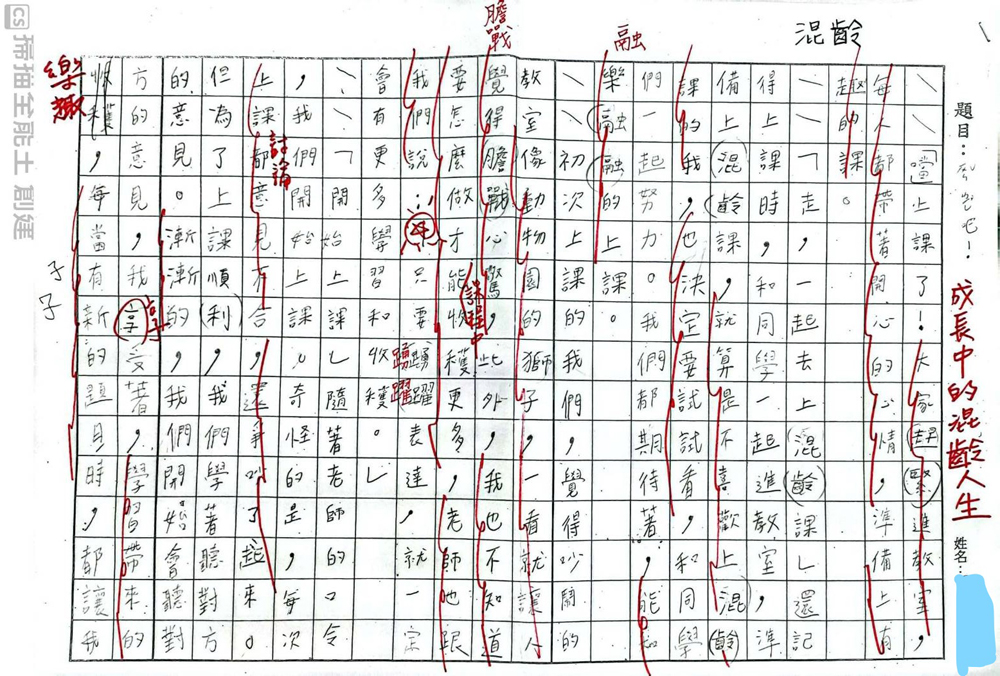 混齡
題目：
成長中的混齡人生
姓名：
「噹上課了！大家趕緊進教室，
每人都帶著開心的心情，準備上有
趣的課。
「走，一起去上混齡課」還記
得上課時，和同學一起進教室，準
備上混齡課，就算是不喜歡上混齡
課的我，也決定要試試看，和同學
們一起努力。我們都期待著，能和
樂融融的上課。
融
初次上課的我們，覺得吵鬧的
教室像動物園的獅子，一看就讓人
覺得膽戰心驚，些外，我也不知道
膽戰
課程中
要怎麼做才能收穫更多，老師也跟
我們說：「只要踴躍表達，就一定
踴躍
會有更多學習和收穫。」
「開始上課」隨著老師的口令
，我們開始上課，奇怪的是，每次
上課都意見不合，還爭吵了起來。
討論
但為了上課順利，我們學著聽對方
的意見。漸漸的，我們開始會聽對
方的意見，我享受著，學習帶來的
享
收穫，每當有新的題目時，都讓我
樂趣
子
子
CS 掃描全能王 創建